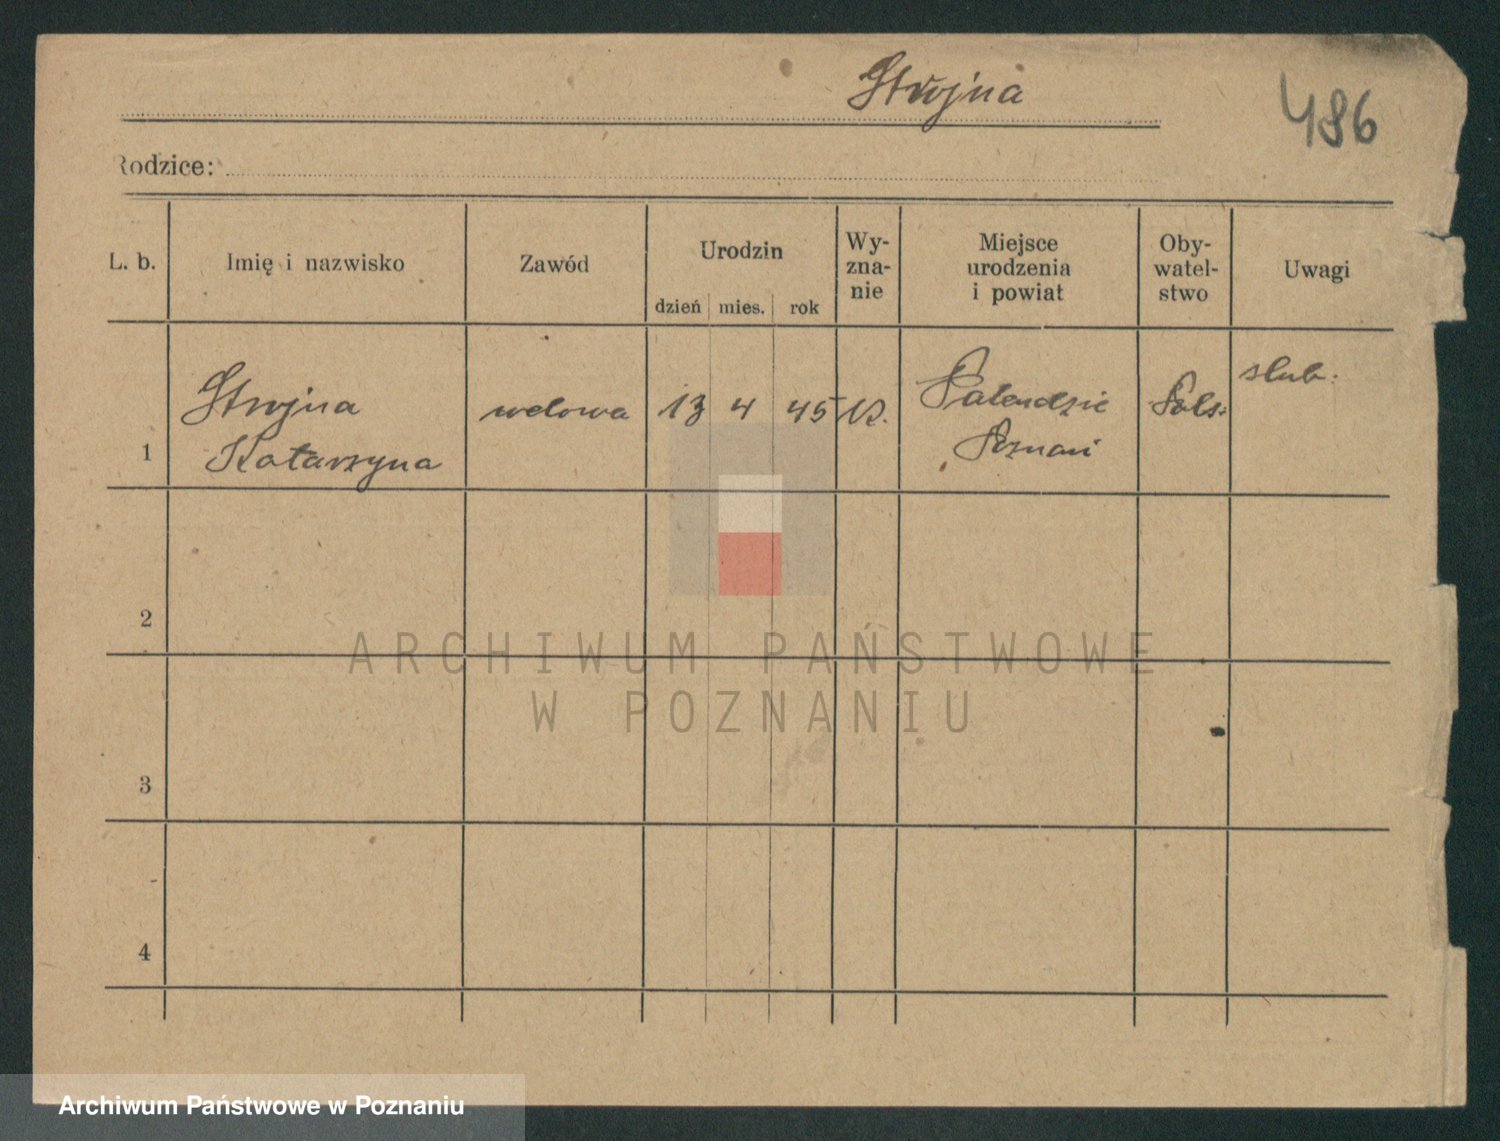 Strojna
486
Rodzice:
L. b.
Imię i nazwisko
Zawód
Urodzin
dzień
mies.
rok
Wy-
zna-
nie
Miejsce
urodzenia
i powiat
Oby-
watel-
stwo
Uwagi
1
Strojna
Katarzyna
wdowa
13
4
45
K.
Palendzie
Poznań
Pols.
slub.
2
3
4
ARCHIWUM PAŃSTWOWE
W POZNANIU
Archiwum Państwowe w Poznaniu